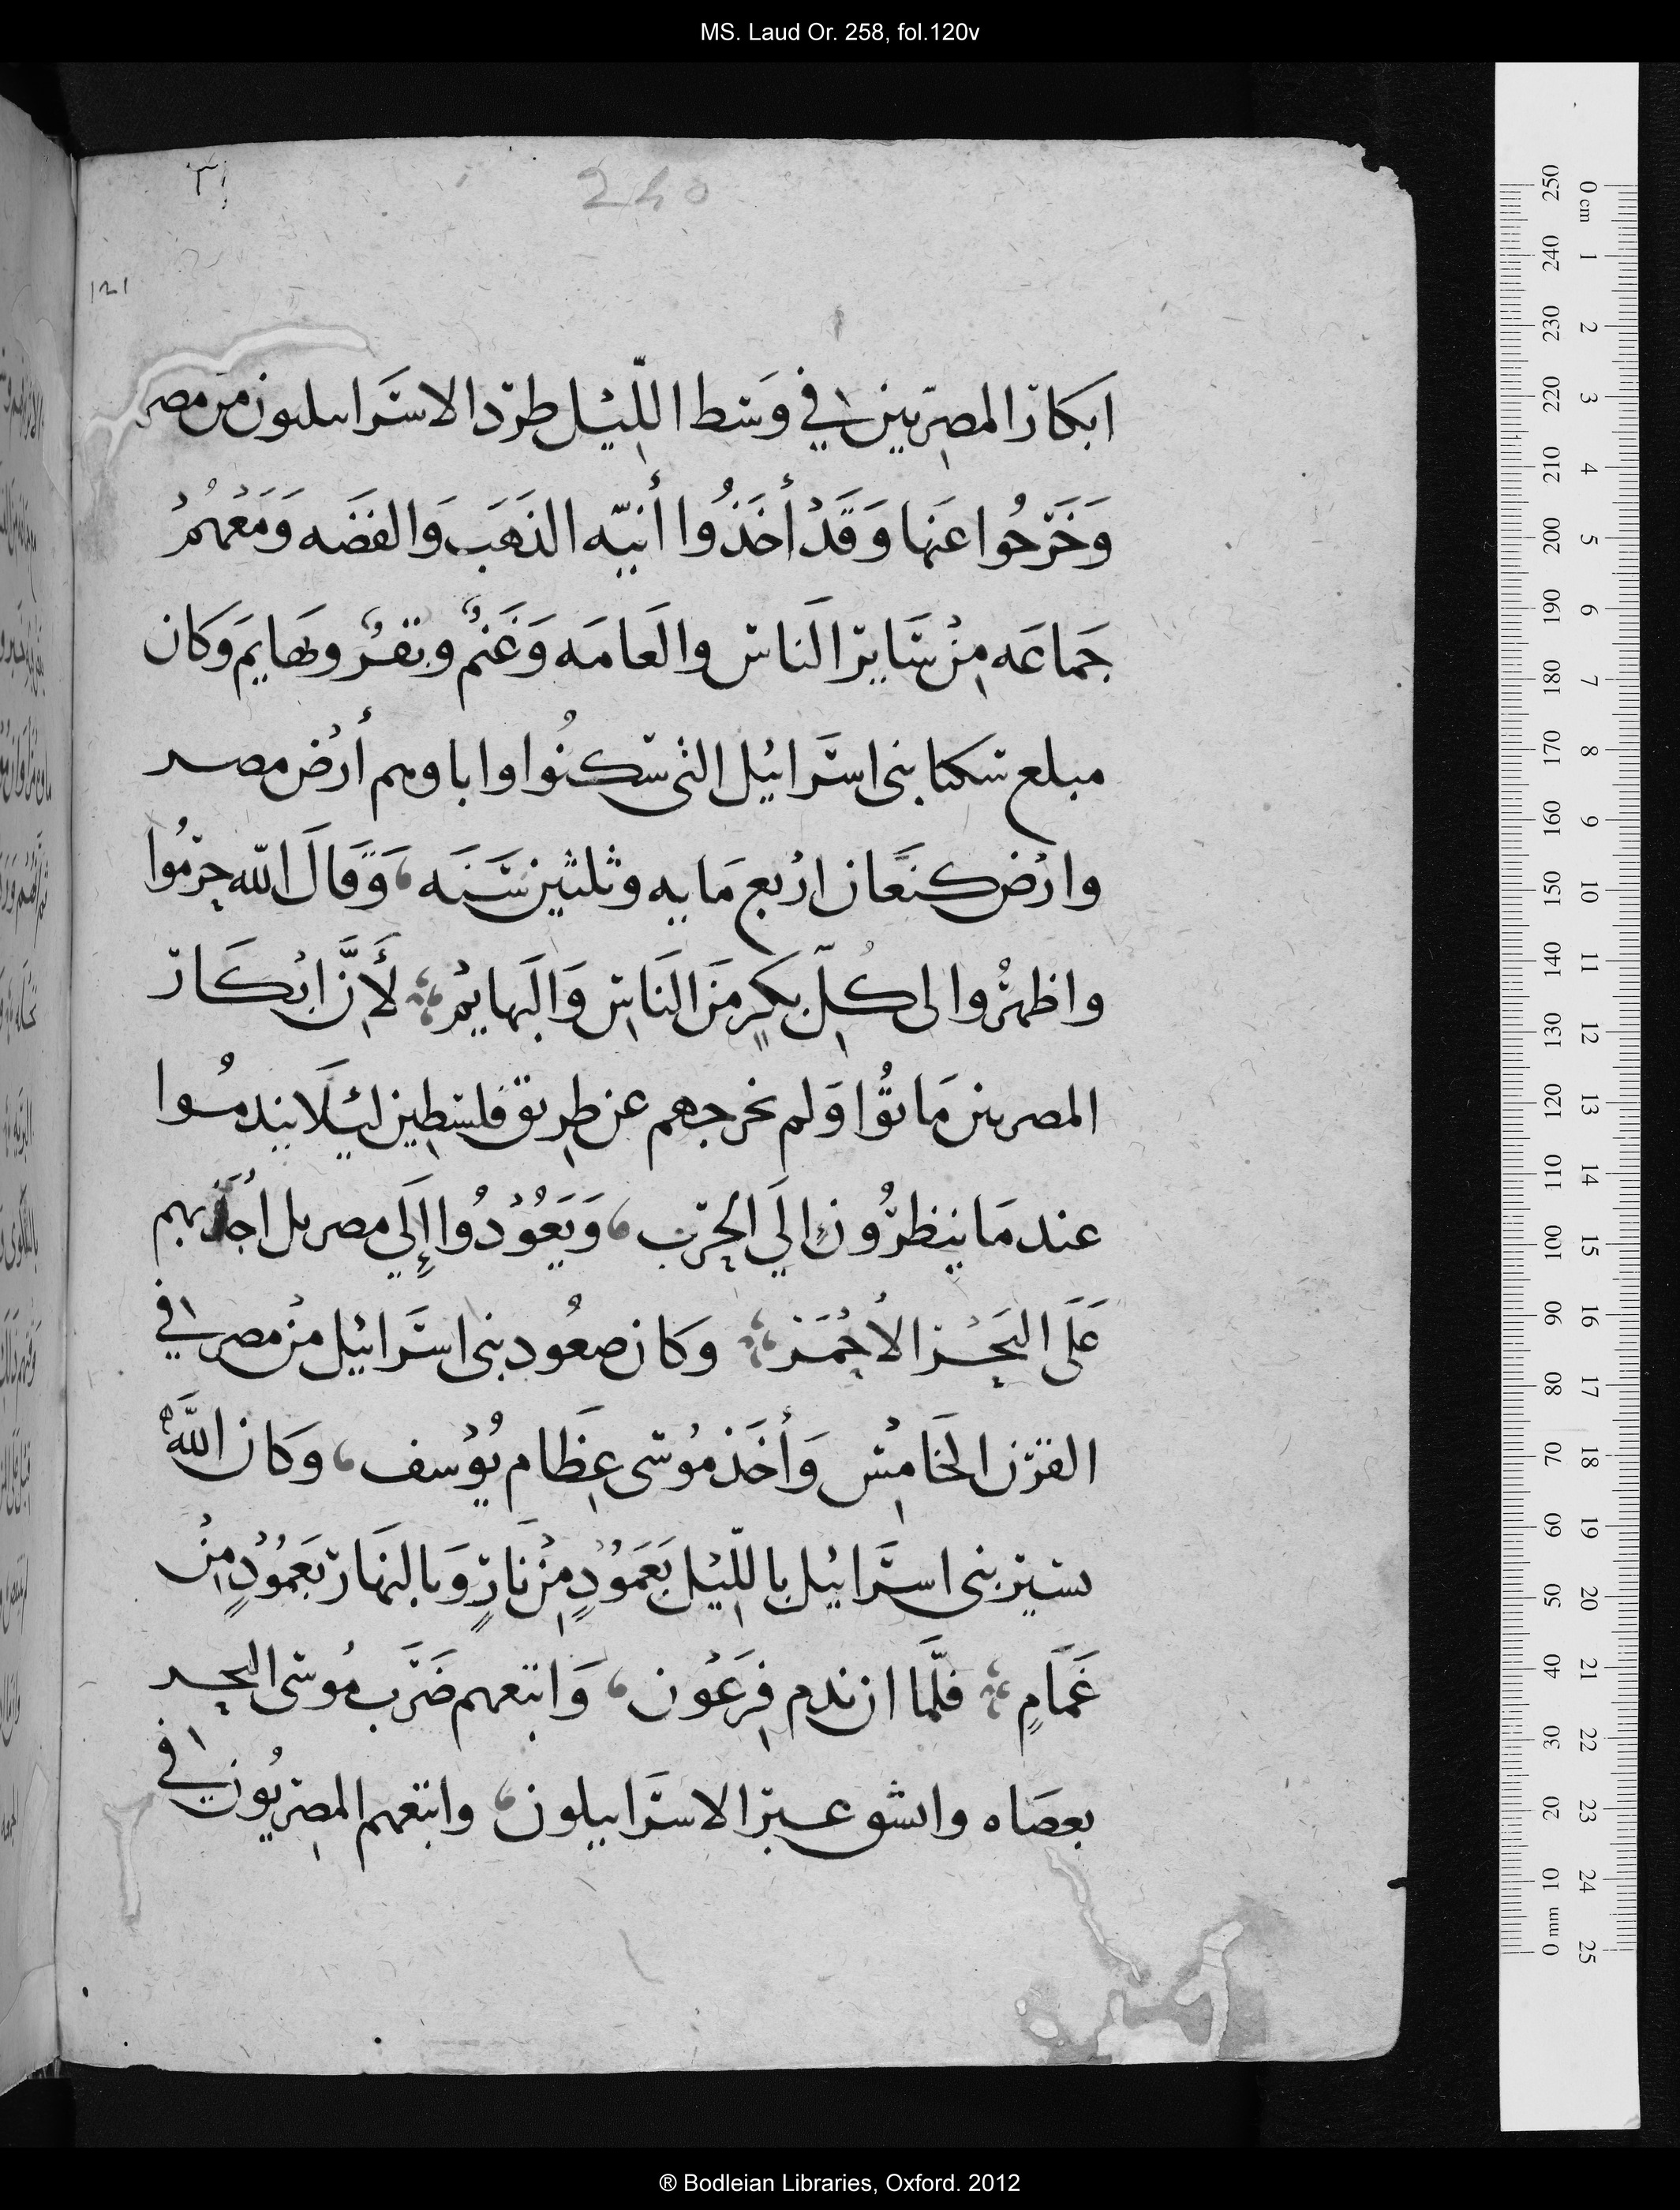 MS. Laud Or. 258, fol.120v
240
121
ابكار المصريين في وسط الليل طرد الاسراىىلىون من مصر
وَخَرَجُوا عَنها وَقَدْ أخَذُوا أنيّه الذَهَب وَالفضَه وَمَعْهُمْ
جَماعَه مِنْ سَاير الَناس والعَامَه وَغَنمٌ وبَقرٌ وبهَايم وَكان
مبلع سكنا بنى اسرَائيل التى سكنُوا واباوهم أرْض مصر
وارْض كنعَان ارْبع مَايه وثلثين سَنَه، وَقَالَ الله حرمُوا
واظهرُوا لى كلّ بكرٍ مَن الَناس وَالبَهايمْ لأَنَّ ابْكَار
المصرىىن مَاتوُا وَلم ىخرجهم عن طرىق فلسطين ليَلا يندمُوا
عندمَا ينظرُون الَي الحرْب، وَيَعُوْدُوا إلَي مصر بل اجَدَبهم
عَلَى البَحْر الأحْمَر وكان صعُود بنى اسرَائيل منْ مصر في
القرْن الخَامسْ وَأخَذ مُوسَى عِظَام يُوْسف، وَكان اللَّهُ
ىسير بنى اسرَائيل بالليْل بَعَمَوُدٍ مِنْ نَارٍ وَبالنَهَار بَعَمُوُدٍ مِنْ
غَمَامٍ فلَّما ان ندم فِرعَوْن، وَاتبعهم ضَرَب مُوسَى البحر
بعصَاه وانشق عبر الاسرَاييلون، واتبعهم المصِريُون في
0 cm 1 2 3 4 5 6 7 8 9 10 11 12 13 14 15 16 17 18 19 20 21 22 23 24 25
250 240 230 220 210 200 190 180 170 160 150 140 130 120 110 100 90 80 70 60 50 40 30 20 10 0 mm
® Bodleian Libraries, Oxford. 2012